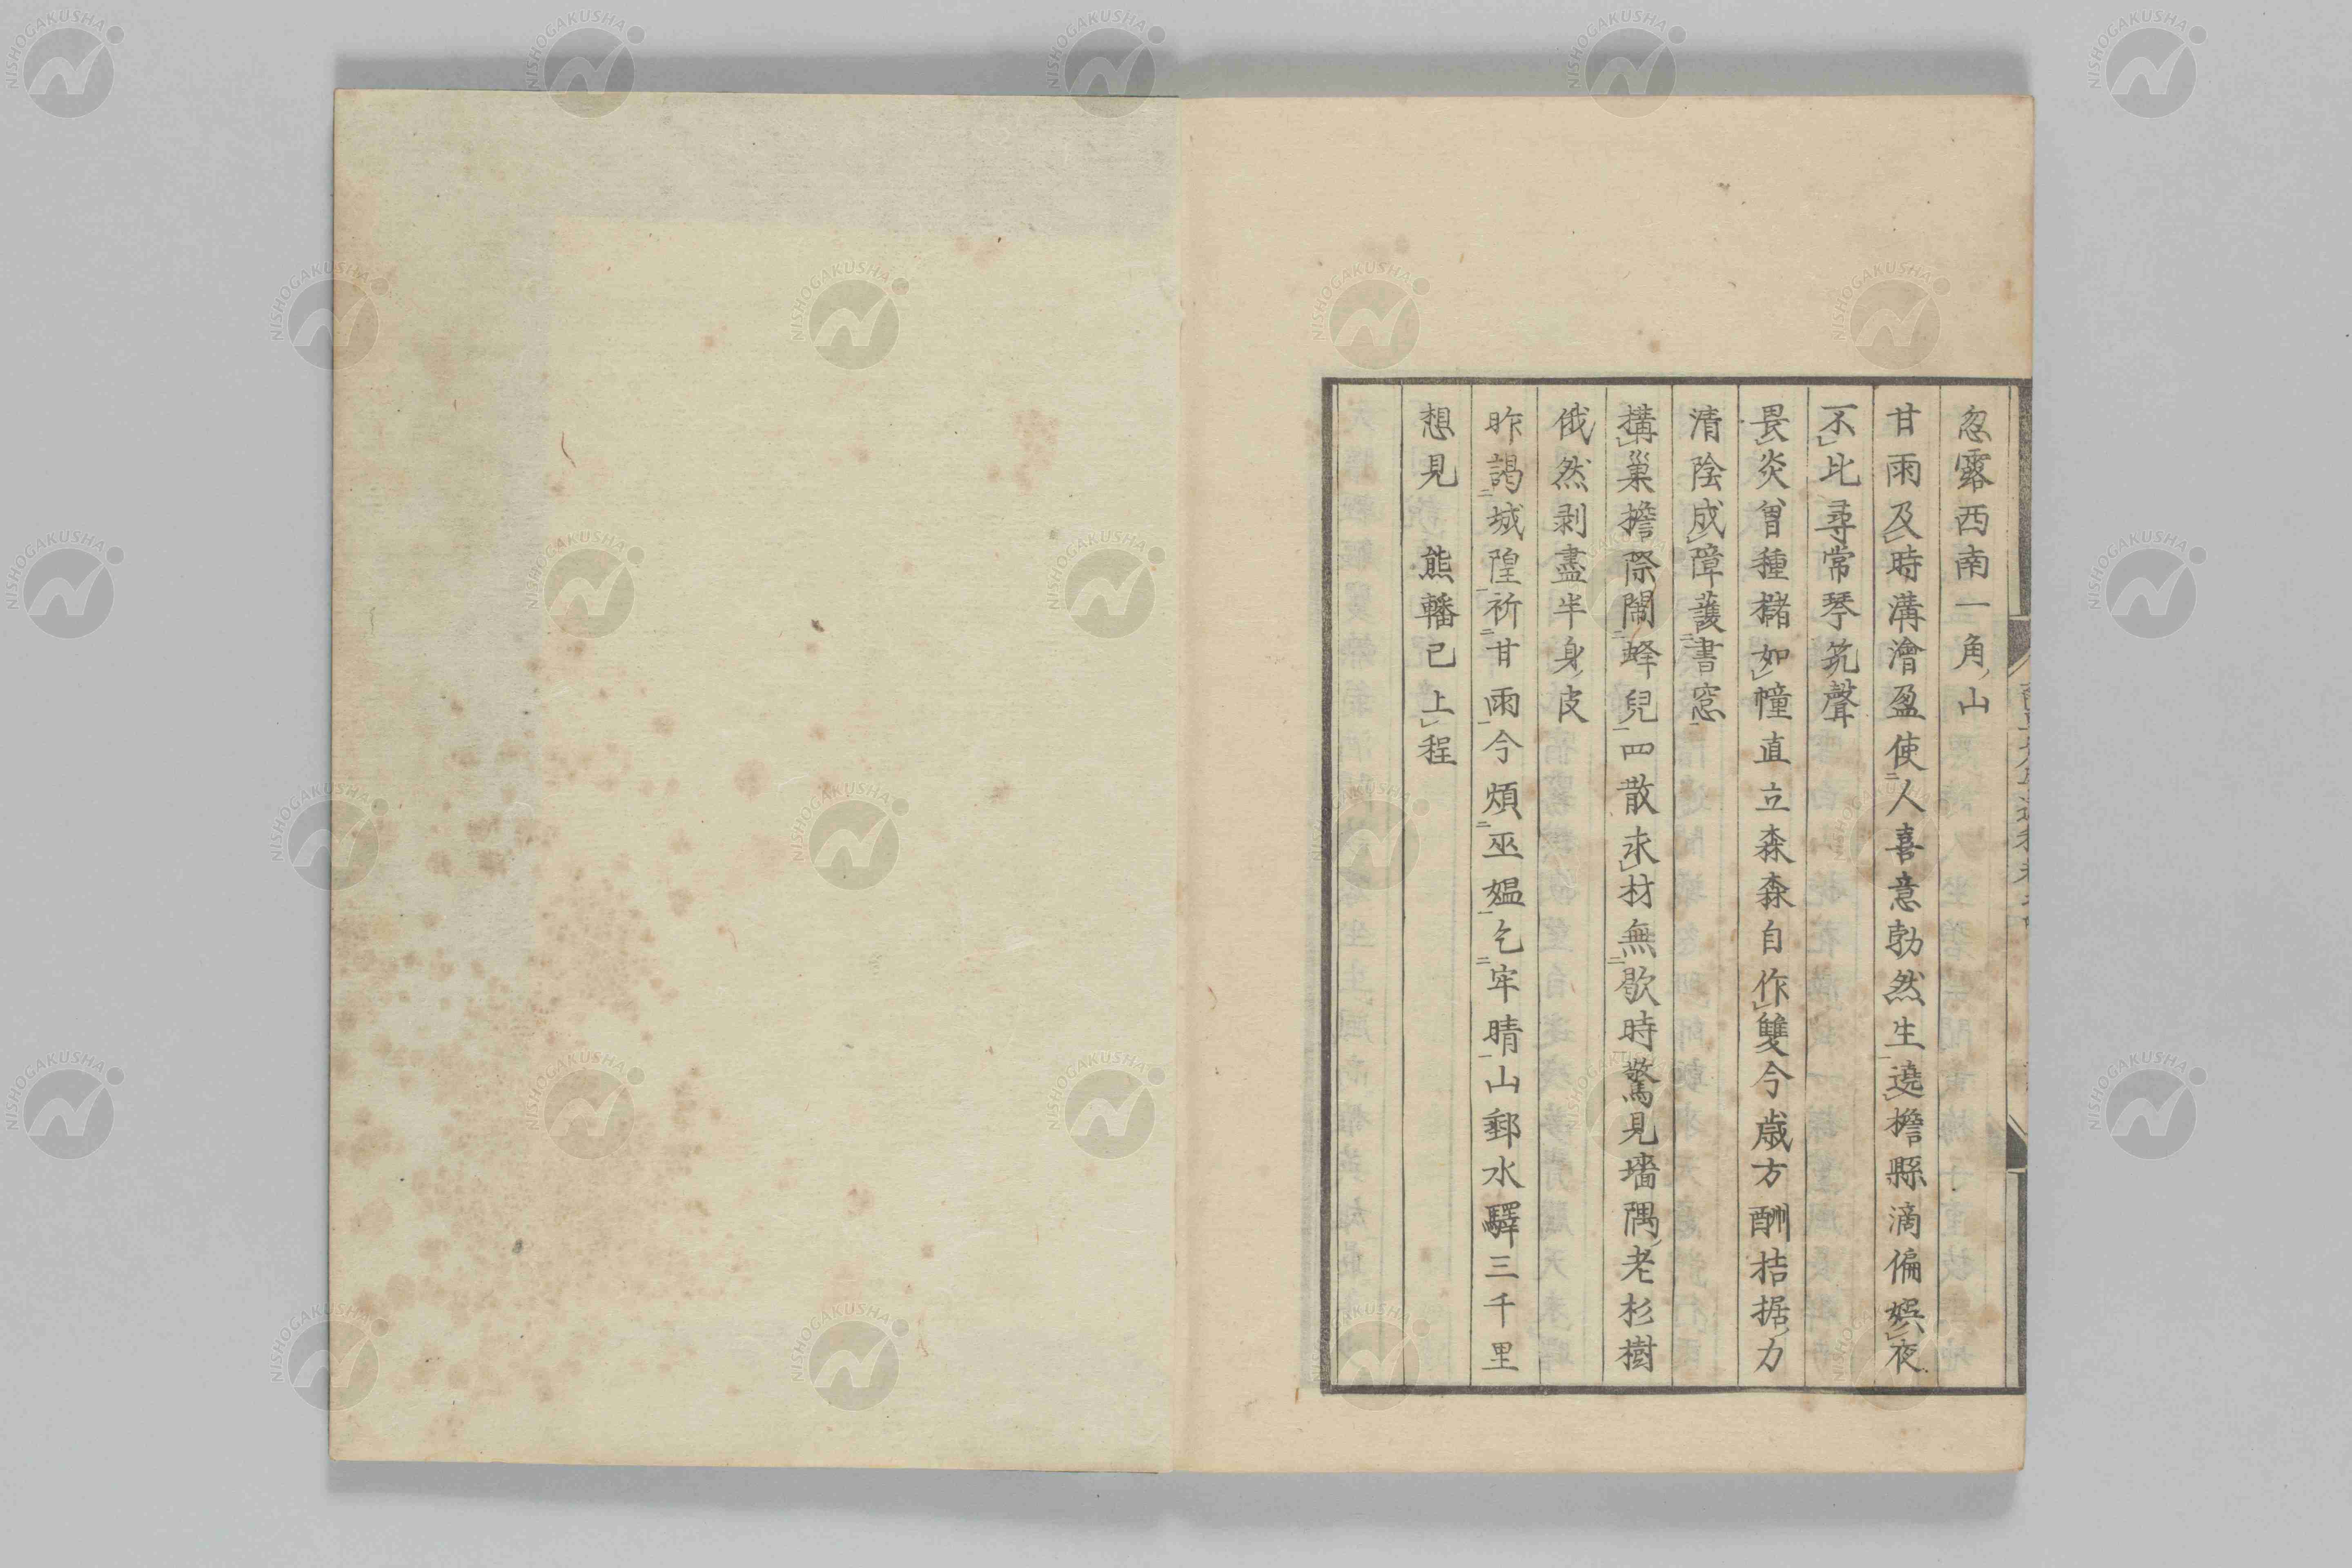 忽露西南一角山
甘雨及時溝澮盈使人喜意勃然生遶檐縣滴偏娯夜
不比尋常琴筑聲
畏炎曾種櫧如幢直立森森自作雙今歳方酬拮据力
清陰成障護書窓
搆巢檐際鬧蜂兒四散求材無歇時驚見墻隅老杉樹
俄然剥盡半身皮
昨謁城隍祈甘雨今煩巫媼乞牢晴山郵水驛三千里
想見熊轓已上程
NISHOGAKUSHA